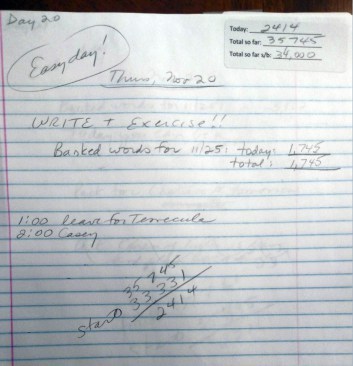 Day 20
Today: 2414
Total so far: 35745
Total so far s/b: 34,000
Easy day!
Thurs, Nov 20
WRITE + Exercise!!
Banked words for 11/25: today: 1,745
total: 1,745
1:00 leave for Temecula
2:00 Casey
35745
start 33331
2414